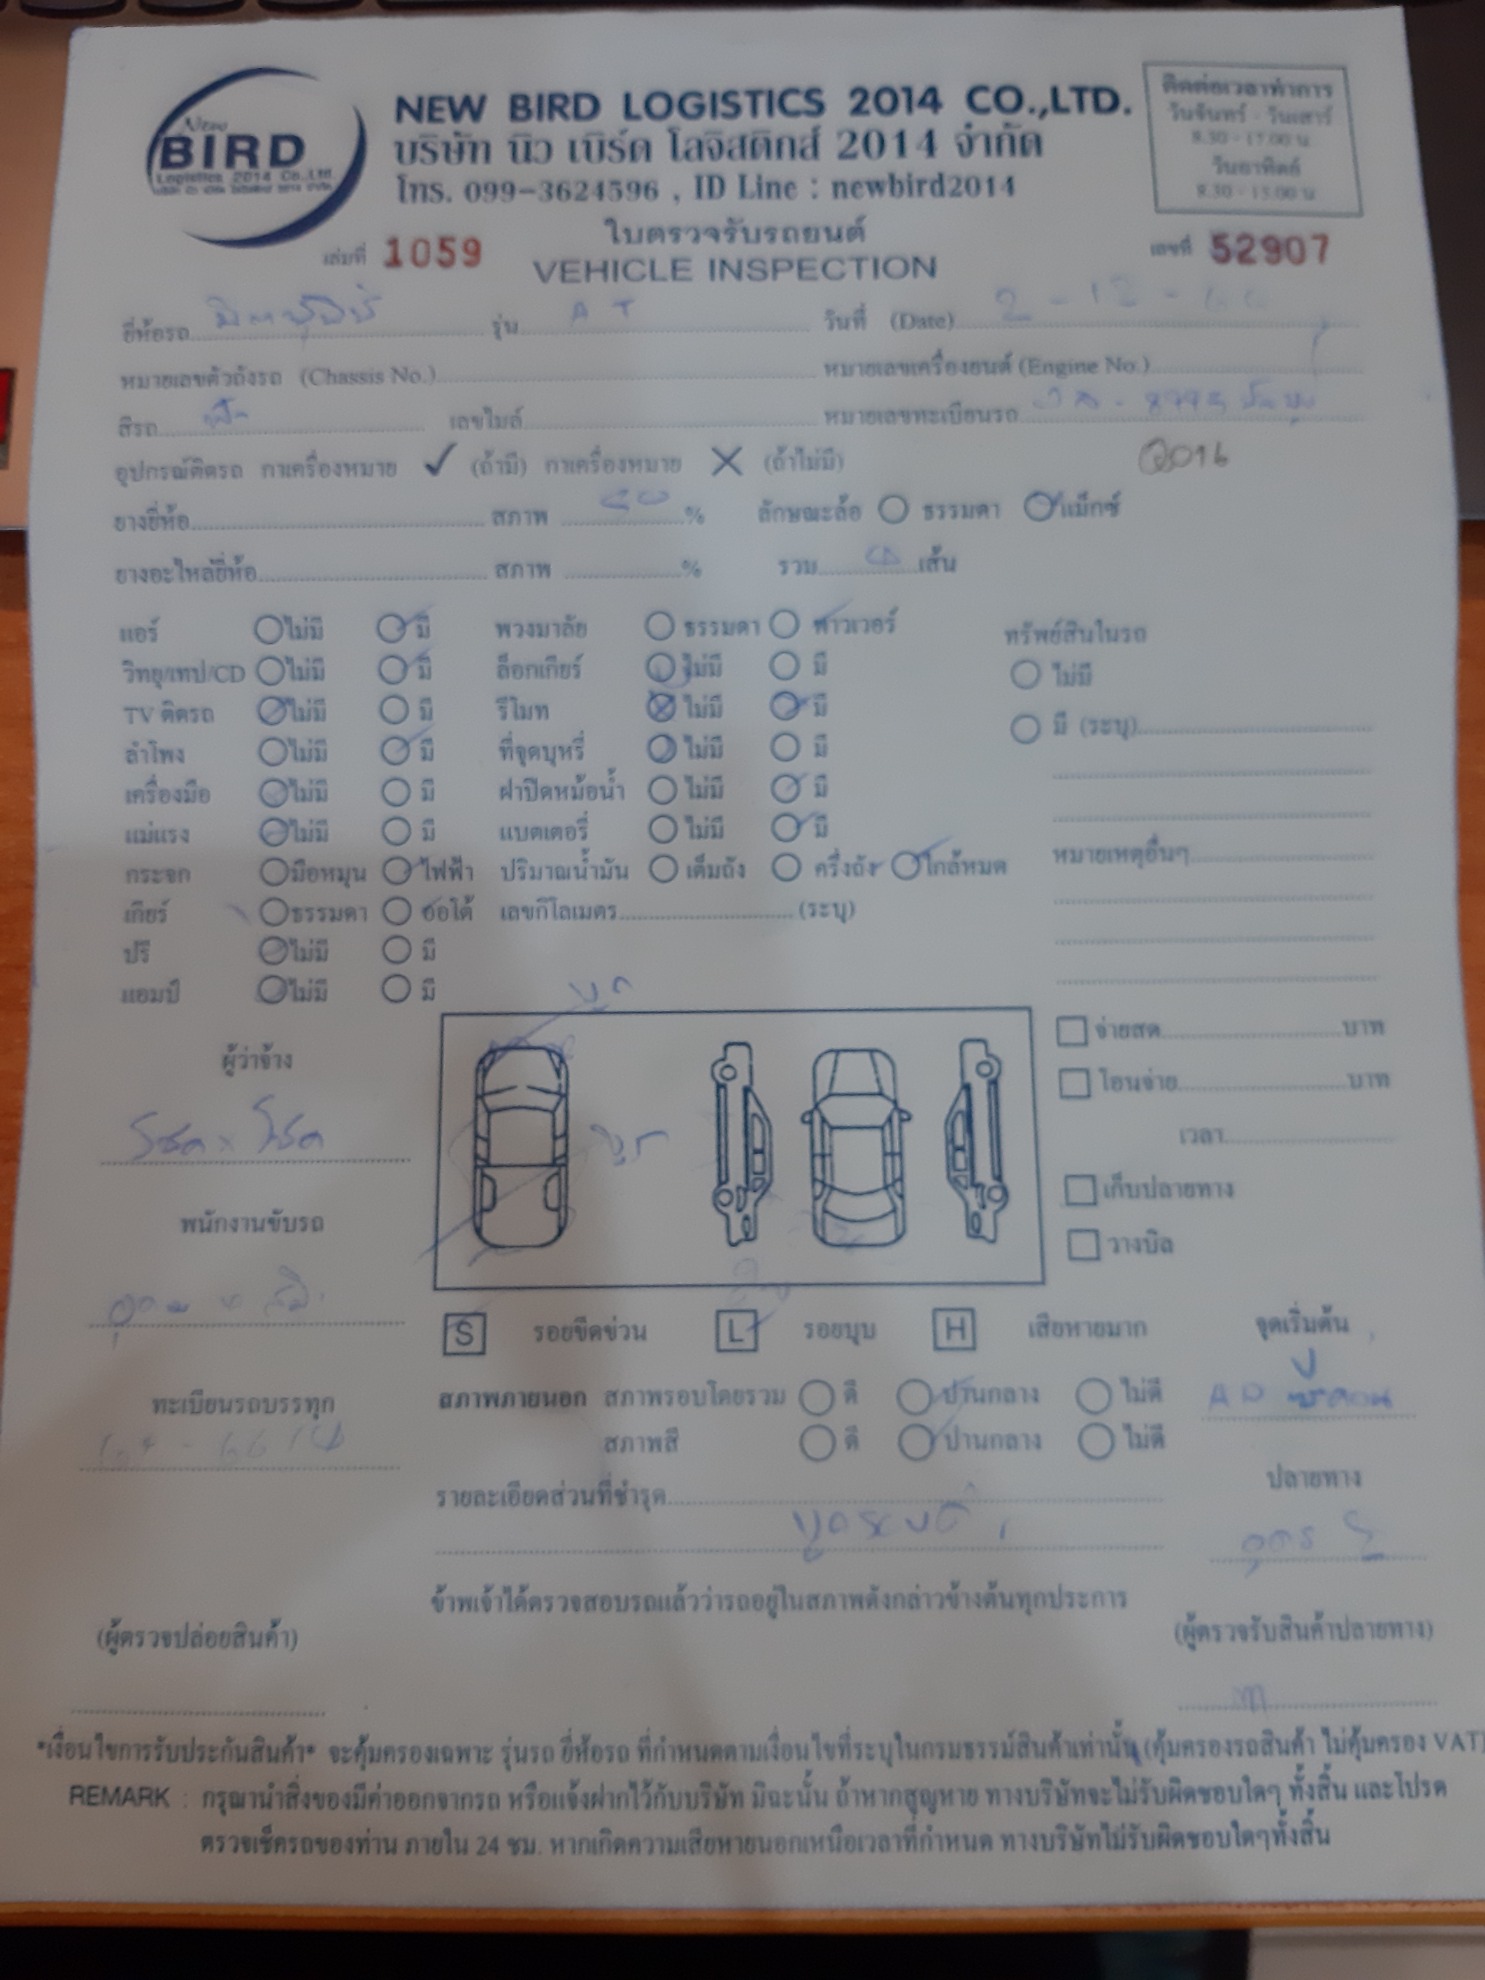 New
BIRD
Logistics 2014 Co.,Ltd.
NEW BIRD LOGISTICS 2014 CO.,LTD.
บริษัท นิว เบิร์ด โลจิสติกส์ 2014 จำกัด
โทร. 099-3624596 , ID Line : newbird2014
ติดต่อเวลาทำการ
วันจันทร์ - วันเสาร์
8.30 - 17.00 น
วันอาทิตย์
8.30 - 15.00 น
ใบตรวจรับรถยนต์
เล่มที่ 1059 VEHICLE INSPECTION เลขที่ 52907
ยี่ห้อรถ มิตซูบิชิ รุ่น AT วันที่ (Date) 2-12-
หมายเลขตัวถังรถ (Chassis No.) หมายเลขเครื่องยนต์ (Engine No.)
สีรถ เลขไมล์ หมายเลขทะเบียนรถ
2016
อุปกรณ์ติดรถ กาเครื่องหมาย ✓ (ถ้ามี) กาเครื่องหมาย ✕ (ถ้าไม่มี)
ยางยี่ห้อ สภาพ % ลักษณะล้อ ธรรมดา แม็กซ์
ยางอะไหล่ยี่ห้อ สภาพ % รวม เส้น
แอร์ ไม่มี มี พวงมาลัย ธรรมดา พาวเวอร์ ทรัพย์สินในรถ
วิทยุ/เทป/CD ไม่มี มี ล็อกเกียร์ ไม่มี มี ไม่มี
TV ติดรถ ไม่มี มี รีโมท ไม่มี มี มี (ระบุ)
ลำโพง ไม่มี มี ที่จุดบุหรี่ ไม่มี มี
เครื่องมือ ไม่มี มี ฝาปิดหม้อน้ำ ไม่มี มี
แม่แรง ไม่มี มี แบตเตอรี่ ไม่มี มี หมายเหตุอื่นๆ
กระจก มือหมุน ไฟฟ้า ปริมาณน้ำมัน เต็มถัง ครึ่งถัง ใกล้หมด
เกียร์ ธรรมดา ออโต้ เลขกิโลเมตร (ระบุ)
ปรี ไม่มี มี
แอมป์ ไม่มี มี
ผู้ว่าจ้าง
โชค x โชค
พนักงานขับรถ
ทะเบียนรถบรรทุก
จ่ายสด บาท
โอนจ่าย บาท
เวลา
เก็บปลายทาง
วางบิล
S รอยขีดข่วน L รอยบุบ H เสียหายมาก
จุดเริ่มต้น
สภาพภายนอก สภาพรอบโดยรวม ดี ปานกลาง ไม่ดี
สภาพสี ดี ปานกลาง ไม่ดี
ปลายทาง
รายละเอียดส่วนที่ชำรุด
ข้าพเจ้าได้ตรวจสอบรถแล้วว่ารถอยู่ในสภาพดังกล่าวข้างต้นทุกประการ
(ผู้ตรวจปล่อยสินค้า) (ผู้ตรวจรับสินค้าปลายทาง)
*เงื่อนไขการรับประกันสินค้า* จะคุ้มครองเฉพาะ รุ่นรถ ยี่ห้อรถ ที่กำหนดตามเงื่อนไขที่ระบุในกรมธรรม์สินค้าเท่านั้น (คุ้มครองรถสินค้า ไม่คุ้มครอง VAT)
REMARK : กรุณานำสิ่งของมีค่าออกจากรถ หรือแจ้งฝากไว้กับบริษัท มิฉะนั้น ถ้าหากสูญหาย ทางบริษัทจะไม่รับผิดชอบใดๆ ทั้งสิ้น และโปรด
ตรวจเช็ครถของท่าน ภายใน 24 ชม. หากเกิดความเสียหายนอกเหนือเวลาที่กำหนด ทางบริษัทไม่รับผิดชอบใดๆทั้งสิ้น